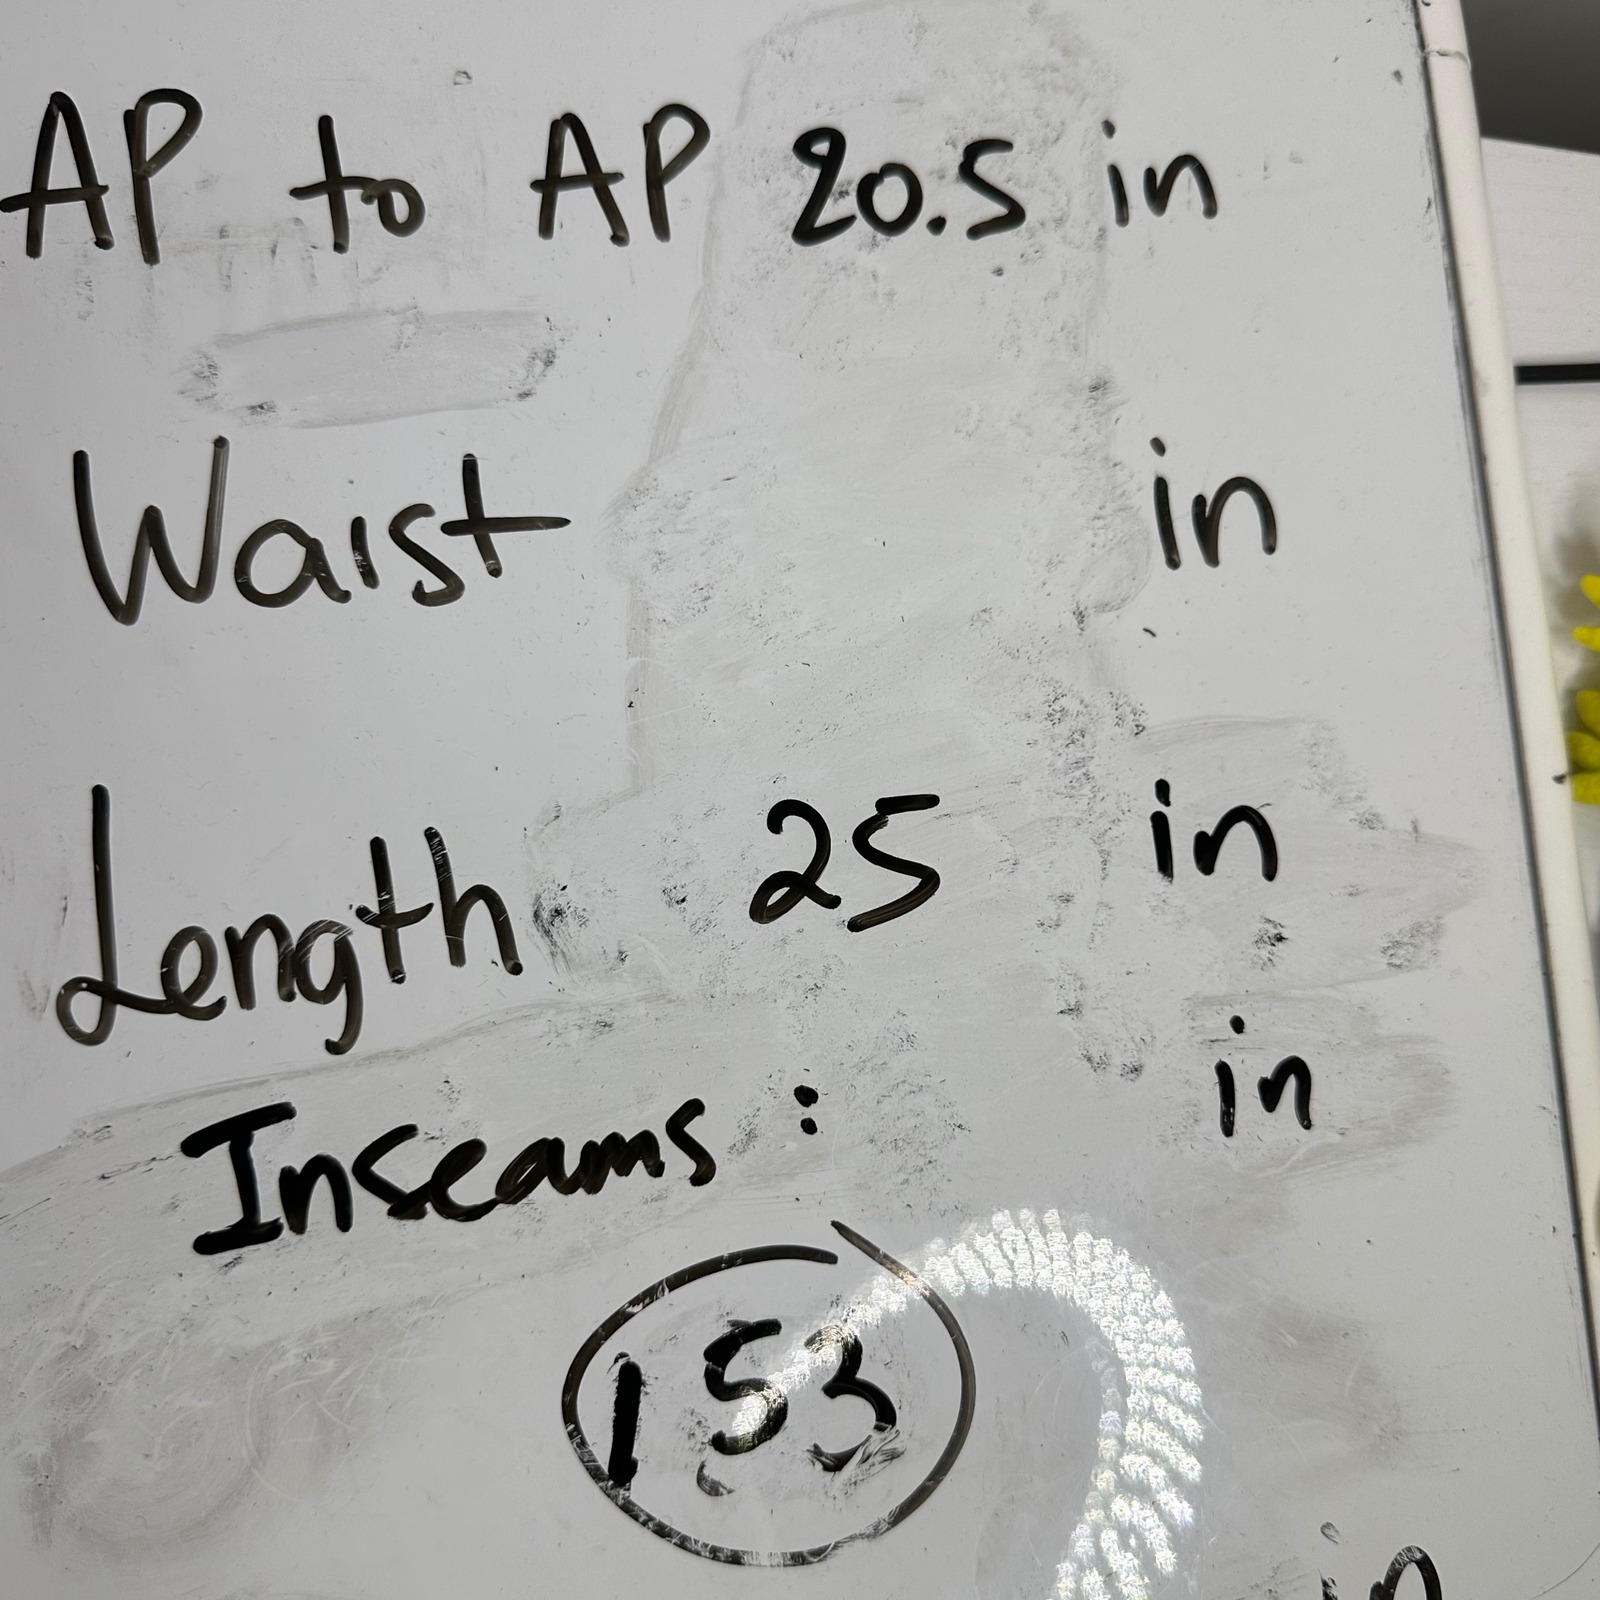 AP to AP 20.5 in
Waist in
Length 25 in
Inseams : in
153
in